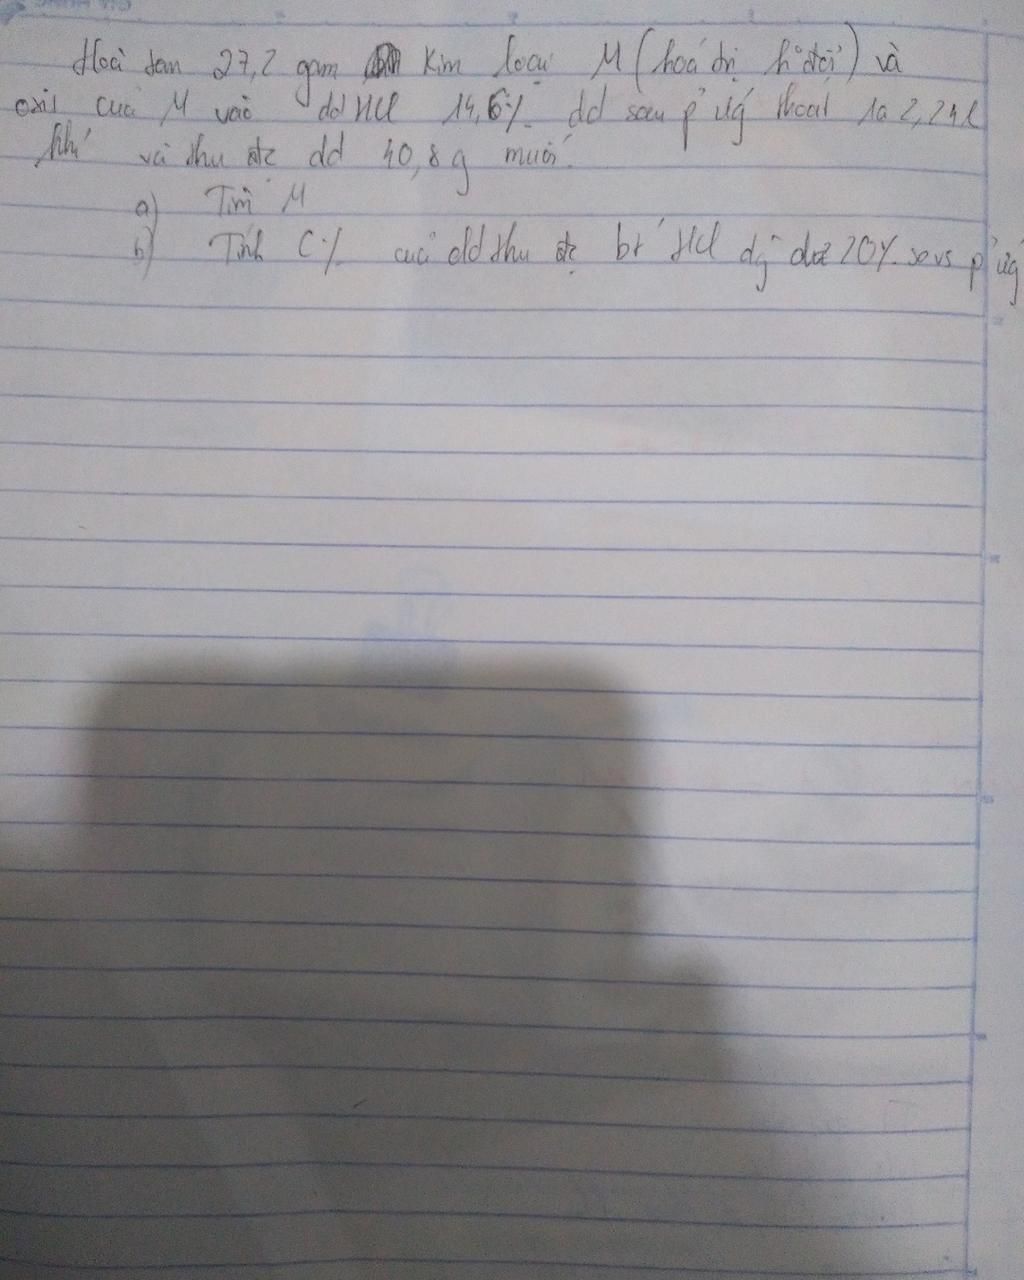 Hoà tan 27,2 gam Kim loại M (hoá trị k đổi) và
oxit của M vào dd HCl 14,6% dd sau p ứg thoát ra 2,24l
khí và thu đc dd 40,8g muối.
a) Tìm M
b) Tính C% của dd thu đc bt HCl dg dư 20% so vs p ứg